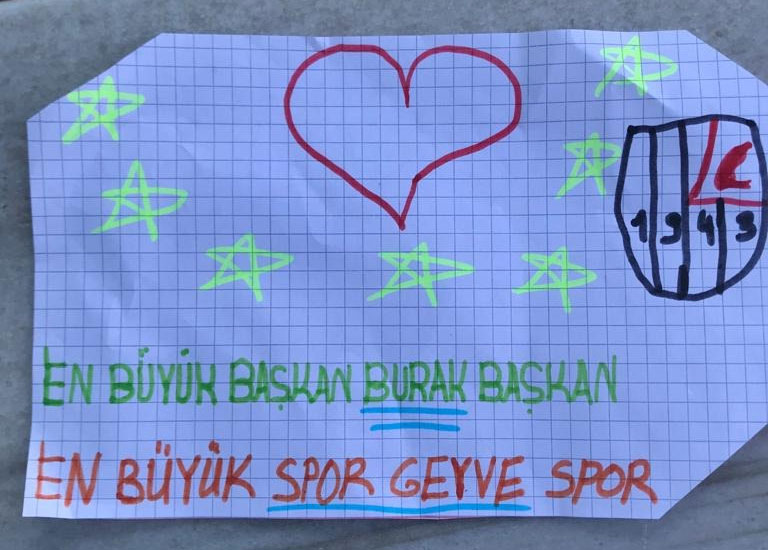 1 3 4 3
EN BÜYÜK BAŞKAN BURAK BAŞKAN
EN BÜYÜK SPOR GEYVE SPOR